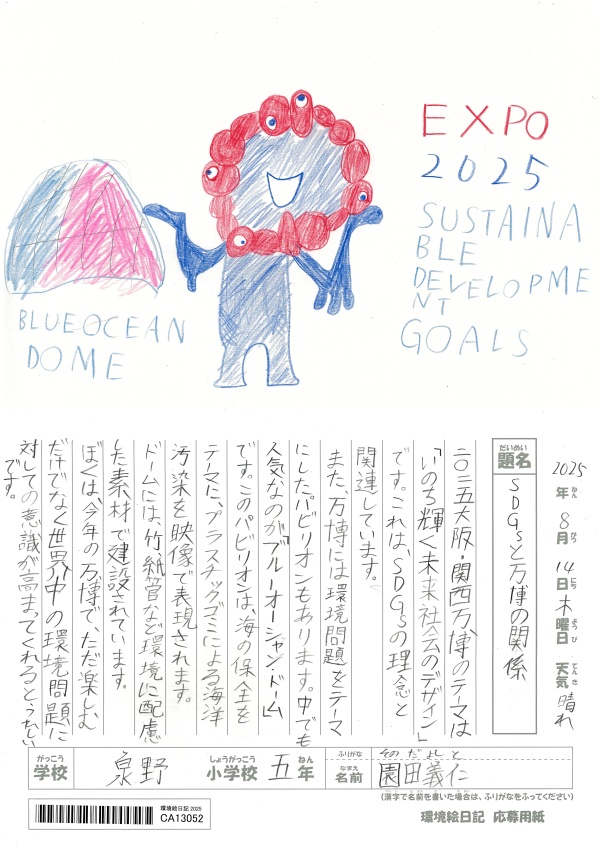 EXPO
2025
SUSTAINA
BLE
DEVELOPME
NT
GOALS
BLUEOCEAN
DOME
2025年8月14日木曜日 天気 晴れ
ねん がつ にち ようび てんき
だいめい
題名
SDGsと万博の関係
二〇二五大阪・関西万博のテーマは
「いのち輝く未来社会のデザイン」
です。これは、SDGsの理念と
関連しています。
また、万博には環境問題をテーマ
にしたパビリオンもあります。中でも
人気なのが「ブルーオーシャン・ドーム」
です。このパビリオンは、海の保全を
テーマに、プラスチックゴミによる海洋
汚染を映像で表現されます。
ドームには、竹、紙管など環境に配慮
した素材で建設されています。
ぼくは、今年の万博で、ただ楽しむ
だけでなく世界中の環境問題に
対しての意識が高まってくれるとうれしい
です。
がっこう しょうがっこう ねん ふりがな そのだよしと
学校 泉野 小学校 五年 なまえ 名前 園田義仁
(漢字で名前を書いた場合は、ふりがなをふってください)
環境絵日記 2025
CA13052
環境絵日記 応募用紙